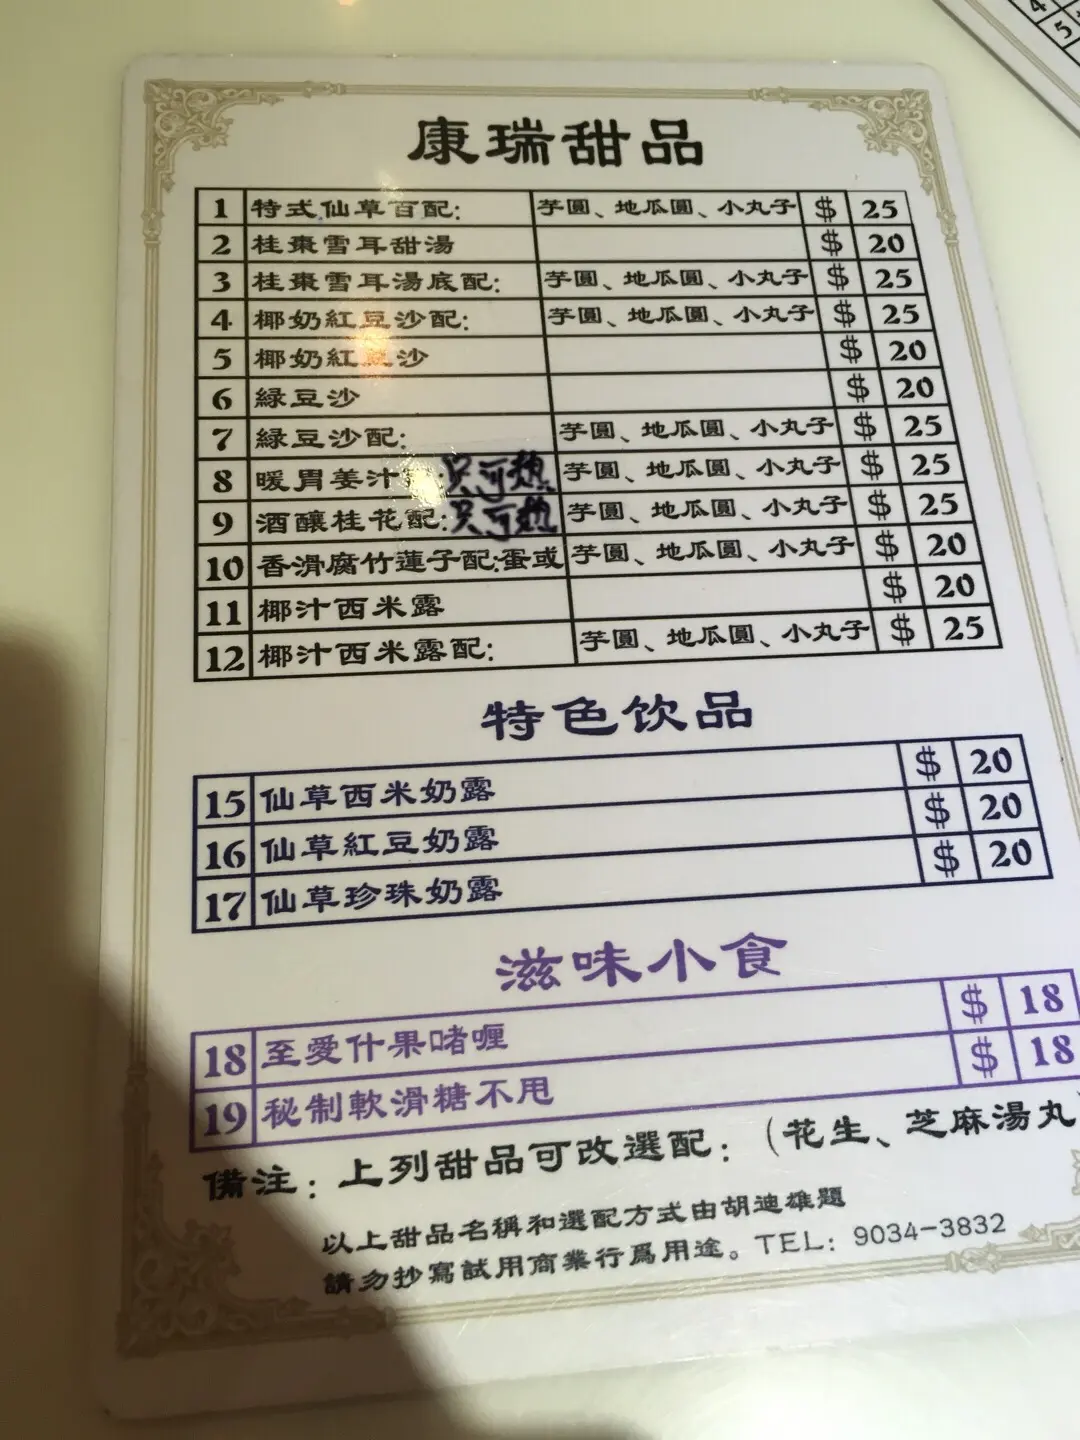 康瑞甜品
1 特式仙草百配: 芋圓、地瓜圓、小丸子 $ 25
2 桂棗雪耳甜湯 $ 20
3 桂棗雪耳湯底配: 芋圓、地瓜圓、小丸子 $ 25
4 椰奶紅豆沙配: 芋圓、地瓜圓、小丸子 $ 25
5 椰奶紅豆沙 $ 20
6 緑豆沙 $ 20
7 緑豆沙配: 芋圓、地瓜圓、小丸子 $ 25
8 暖胃姜汁 :只可熱 芋圓、地瓜圓、小丸子 $ 25
9 酒釀桂花配:只可熱 芋圓、地瓜圓、小丸子 $ 25
10 香滑腐竹蓮子配:蛋或 芋圓、地瓜圓、小丸子 $ 20
11 椰汁西米露 $ 20
12 椰汁西米露配: 芋圓、地瓜圓、小丸子 $ 25
特色饮品
15 仙草西米奶露 $ 20
16 仙草紅豆奶露 $ 20
17 仙草珍珠奶露 $ 20
滋味小食
18 至愛什果啫喱 $ 18
19 秘制軟滑糖不甩 $ 18
備注: 上列甜品可改選配: (花生、芝麻湯丸)
以上甜品名稱和選配方式由胡迪雄題
請勿抄寫試用商業行爲用途。TEL: 9034-3832
4
5